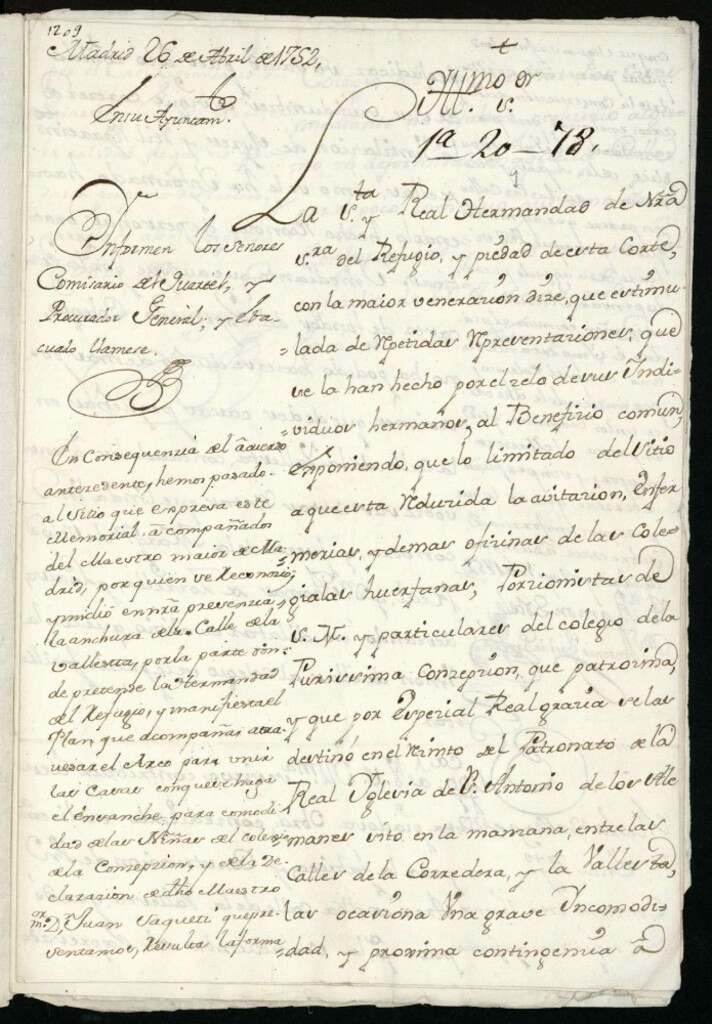 1209
Madrid 26 de Abril de 1752,
En su Ayuntam.to
+
Yllmo Sr
1ª 20 - 78.
Ynformen los señores
Comisario del Quartel, y
Procurador General, y eba-
cuado llamese.
En Consequenzia del acuerdo
anteredente, hemos pasado
al sitio que expresa este
Memorial, acompañados
del Maestro maior de Ma-
drid, por quien se reconozió,
y midió en nrã presenzia,
la anchura dela Calle dela
Vallesta, por la parte don-
de pretende la Hermandad
del Refugio, y manifiesta el
Plan que acompaña, atra-
vesar el Arco para unir
las Casas conque se haga
el ensanche para comodi-
dad delas Niñas del colegio
dela Conzepzion, y dela De-
clarazion de dho Maestro
D. Juan Saqueti que pre-
sentamos, resulta la forma
La S.ta y Real Hermandad de Nrã
S.ra del Refugio, y piedad de esta Corte,
con la maior venerazión dize, que estimu-
=lada de repetidas representaziones, que
se la han hecho por el zelo de sus Yndi=
viduos hermanos, al Benefizio comun,
exponiendo, que lo limitado del sitio
a que esta reduzida la avitazion, enfer
=merias, y demas ofizinas de las Cole=
gialas huerfanas, Porzionistas de
S. M. y particulares del colegio de la
Purissima Conzepzion, que patrozina,
y que por Espezial Real grazia se las
destinó en el rezinto del Patronato de la
Real Yglesia de S. Antonio de los Ale
manes sito en la manzana, entre las
Calles de la Corredera, y la Vallesta,
las ocasiona una grave Yncomodi=
=dad, y proxima contingenzia â